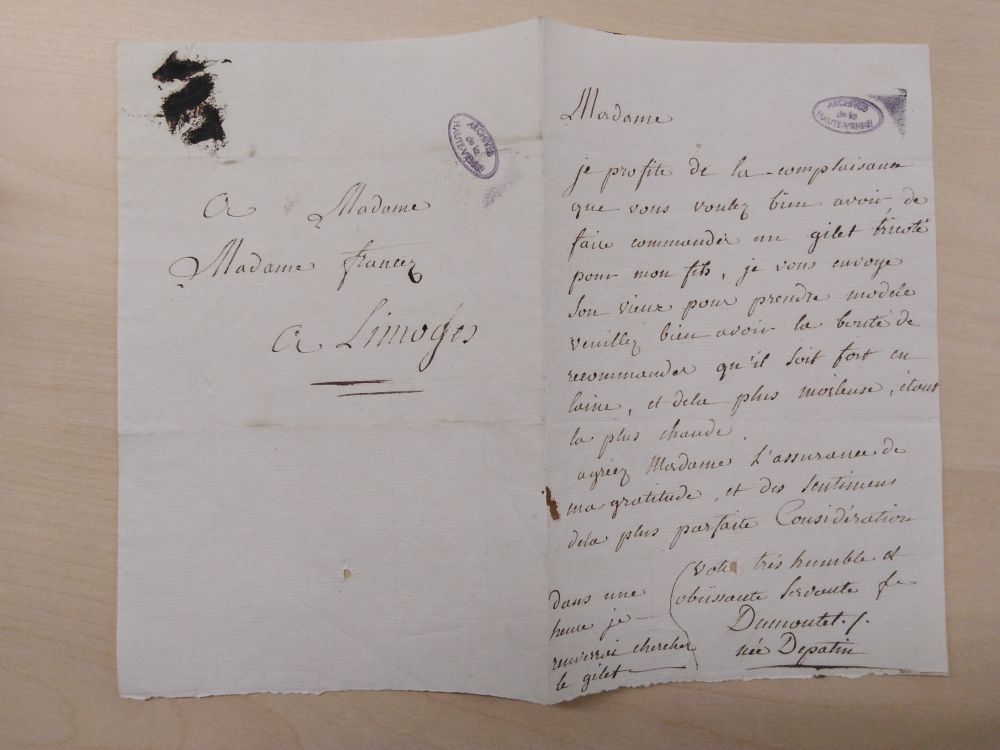 A Madame
Madame francez
A Limoges
ARCHIVES
de la
HAUTE-VIENNE
ARCHIVES
de la
HAUTE-VIENNE
Madame
je profite de la complaisance
que vous voulez bien avoir, de
faire commander un gilet tricoté
pour mon fils, je vous envoye
son vieux pour prendre modele
veuillez bien avoir la bonté de
recommander qu'il soit fort en
laine, et dela plus moileuse, étant
la plus chaude.
agréez Madame L'assurance de
ma gratitude, et des sentimens
dela plus parfaite Considération
votre trés humble et
obéissante servante fe
Dumontet ./.
née Depatin
dans une
heure je
renverrai chercher
le gilet